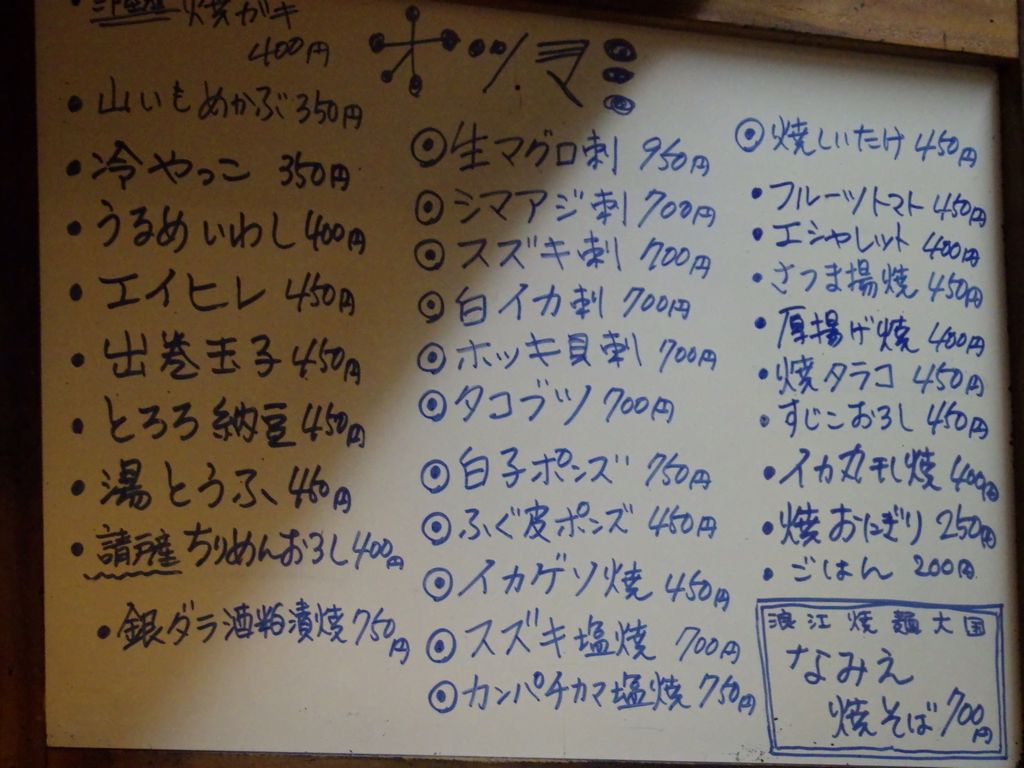 焼ガキ
400円
・山いもめかぶ 350円
・冷やっこ 350円
・うるめいわし 400円
・エイヒレ 450円
・出巻玉子 450円
・とろろ納豆 450円
・湯とうふ 450円
・請戸産 ちりめんおろし 400円
・銀ダラ酒粕漬焼 750円
オツマミ
◎生マグロ刺 950円
◎シマアジ刺 700円
◎スズキ刺 700円
◎白イカ刺 700円
◎ホッキ貝刺 700円
◎タコブツ 700円
◎白子ポンズ 750円
◎ふぐ皮ポンズ 450円
◎イカゲソ焼 450円
◎スズキ塩焼 700円
◎カンパチカマ塩焼 750円
◎焼しいたけ 450円
・フルーツトマト 450円
・エシャレット 400円
・さつま揚焼 450円
・厚揚げ焼 400円
・焼タラコ 450円
・すじこおろし 450円
・イカ丸干し焼 400円
・焼おにぎり 250円
・ごはん 200円
浪江焼麺大国
なみえ
焼そば 700円